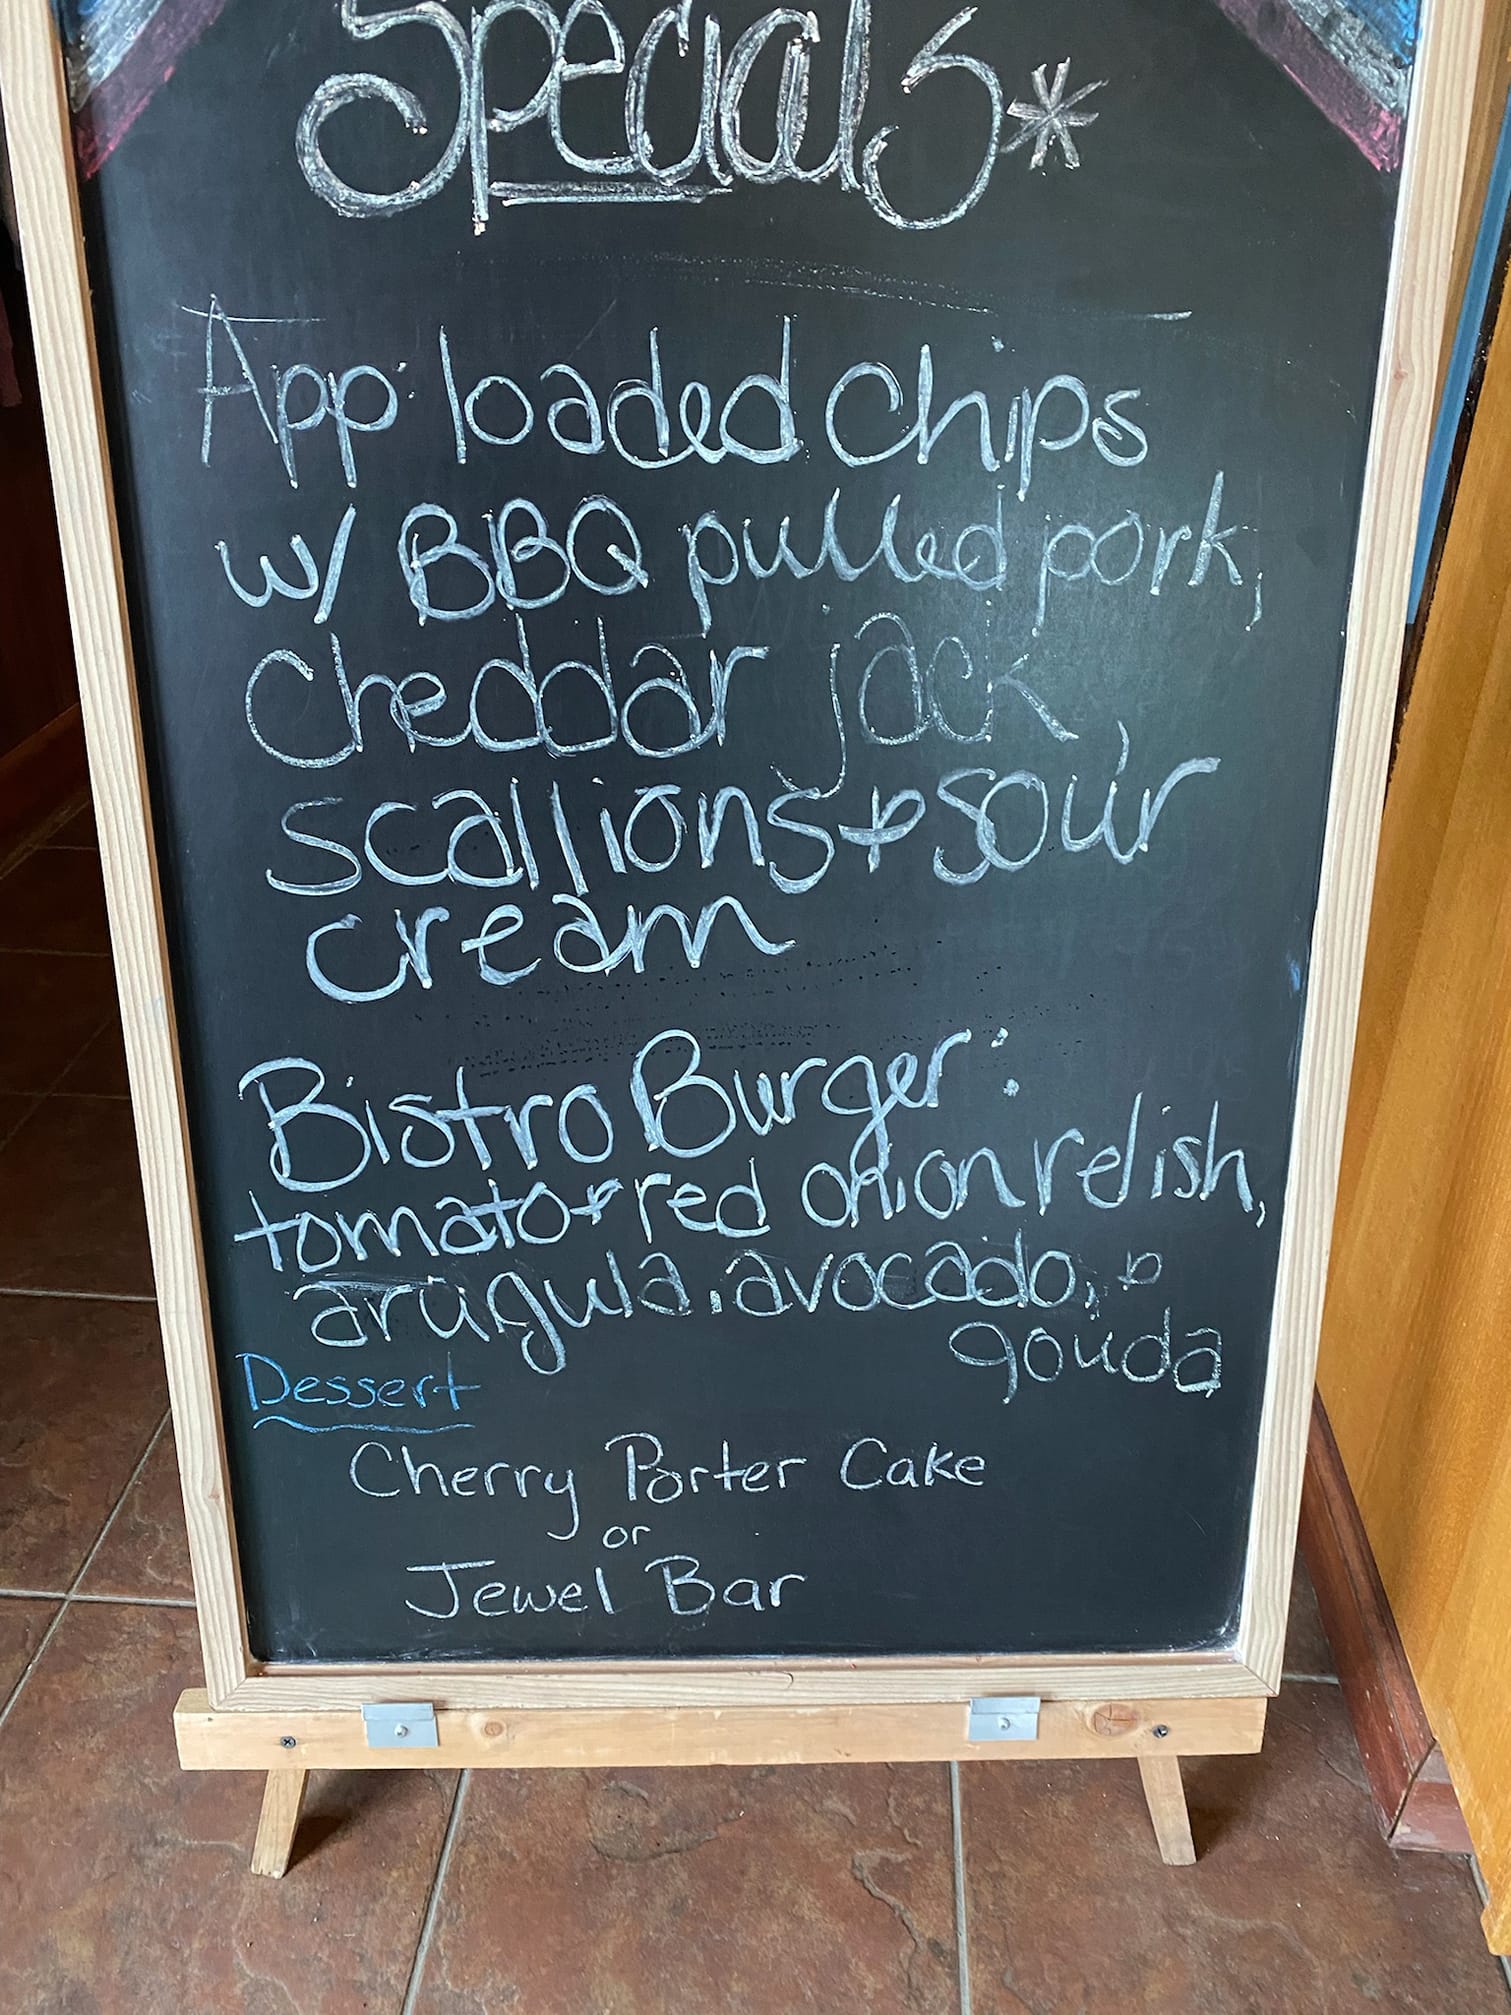 Specials*
App: loaded chips
w/ BBQ pulled pork,
cheddar jack,
scallions & sour
cream
Bistro Burger:
tomato & red onion relish,
arugula, avocado, &
gouda
Dessert
Cherry Porter Cake
or
Jewel Bar